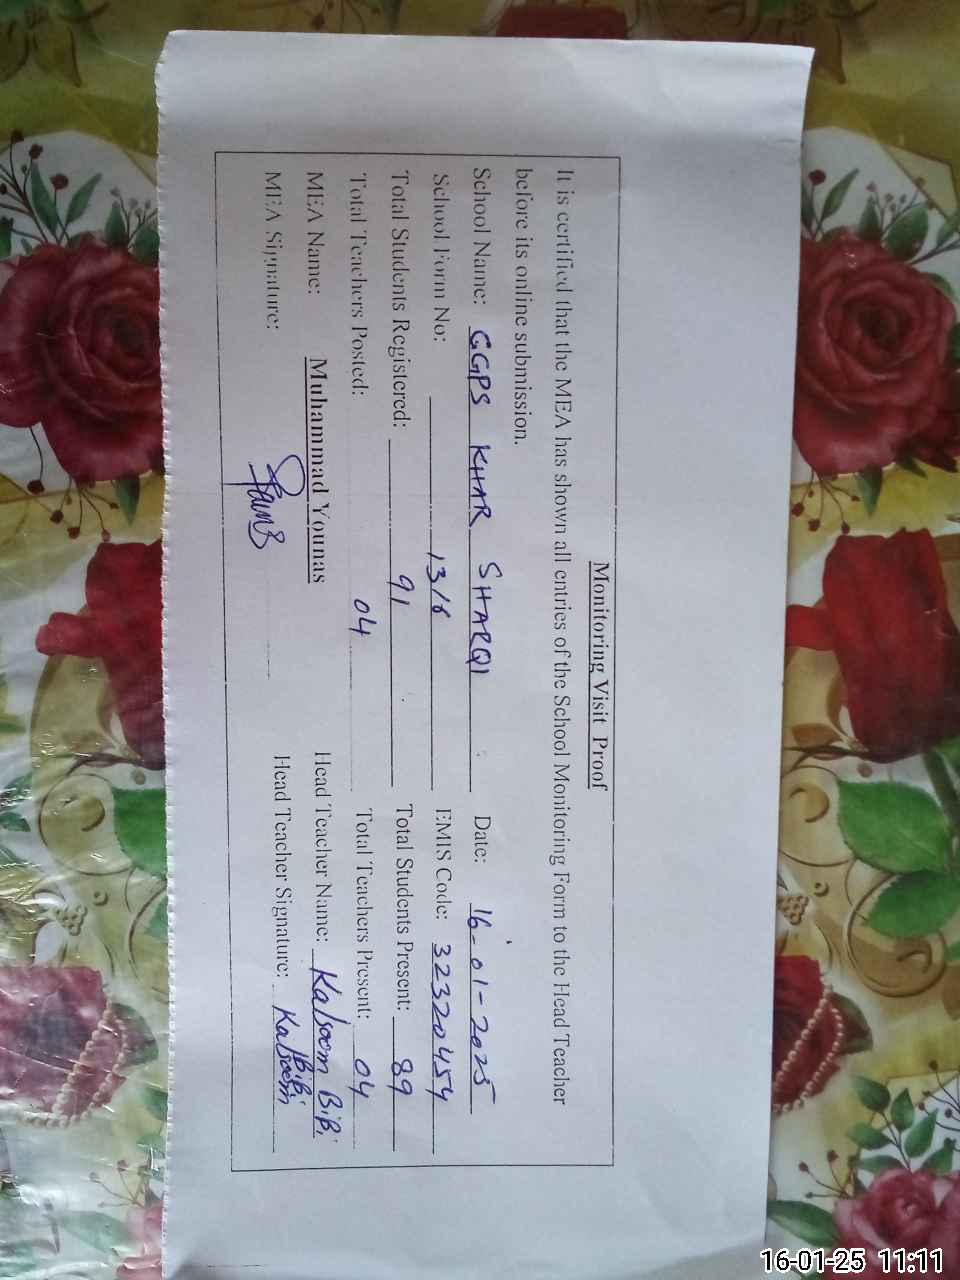 Monitoring Visit Proof
It is certified that the MEA has shown all entries of the School Monitoring Form to the Head Teacher
before its online submission.
School Name: GGPS KHAR SHARQI Date: 16-01-2025
School Form No: 1316 EMIS Code: 32320454
Total Students Registered: 91 Total Students Present: 89
Total Teachers Posted: 04 Total Teachers Present: 04
MEA Name: Muhammad Younas Head Teacher Name: Kalsoom BiBi
MEA Signature: Head Teacher Signature: Kalsoom BiBi
16-01-25 11:11